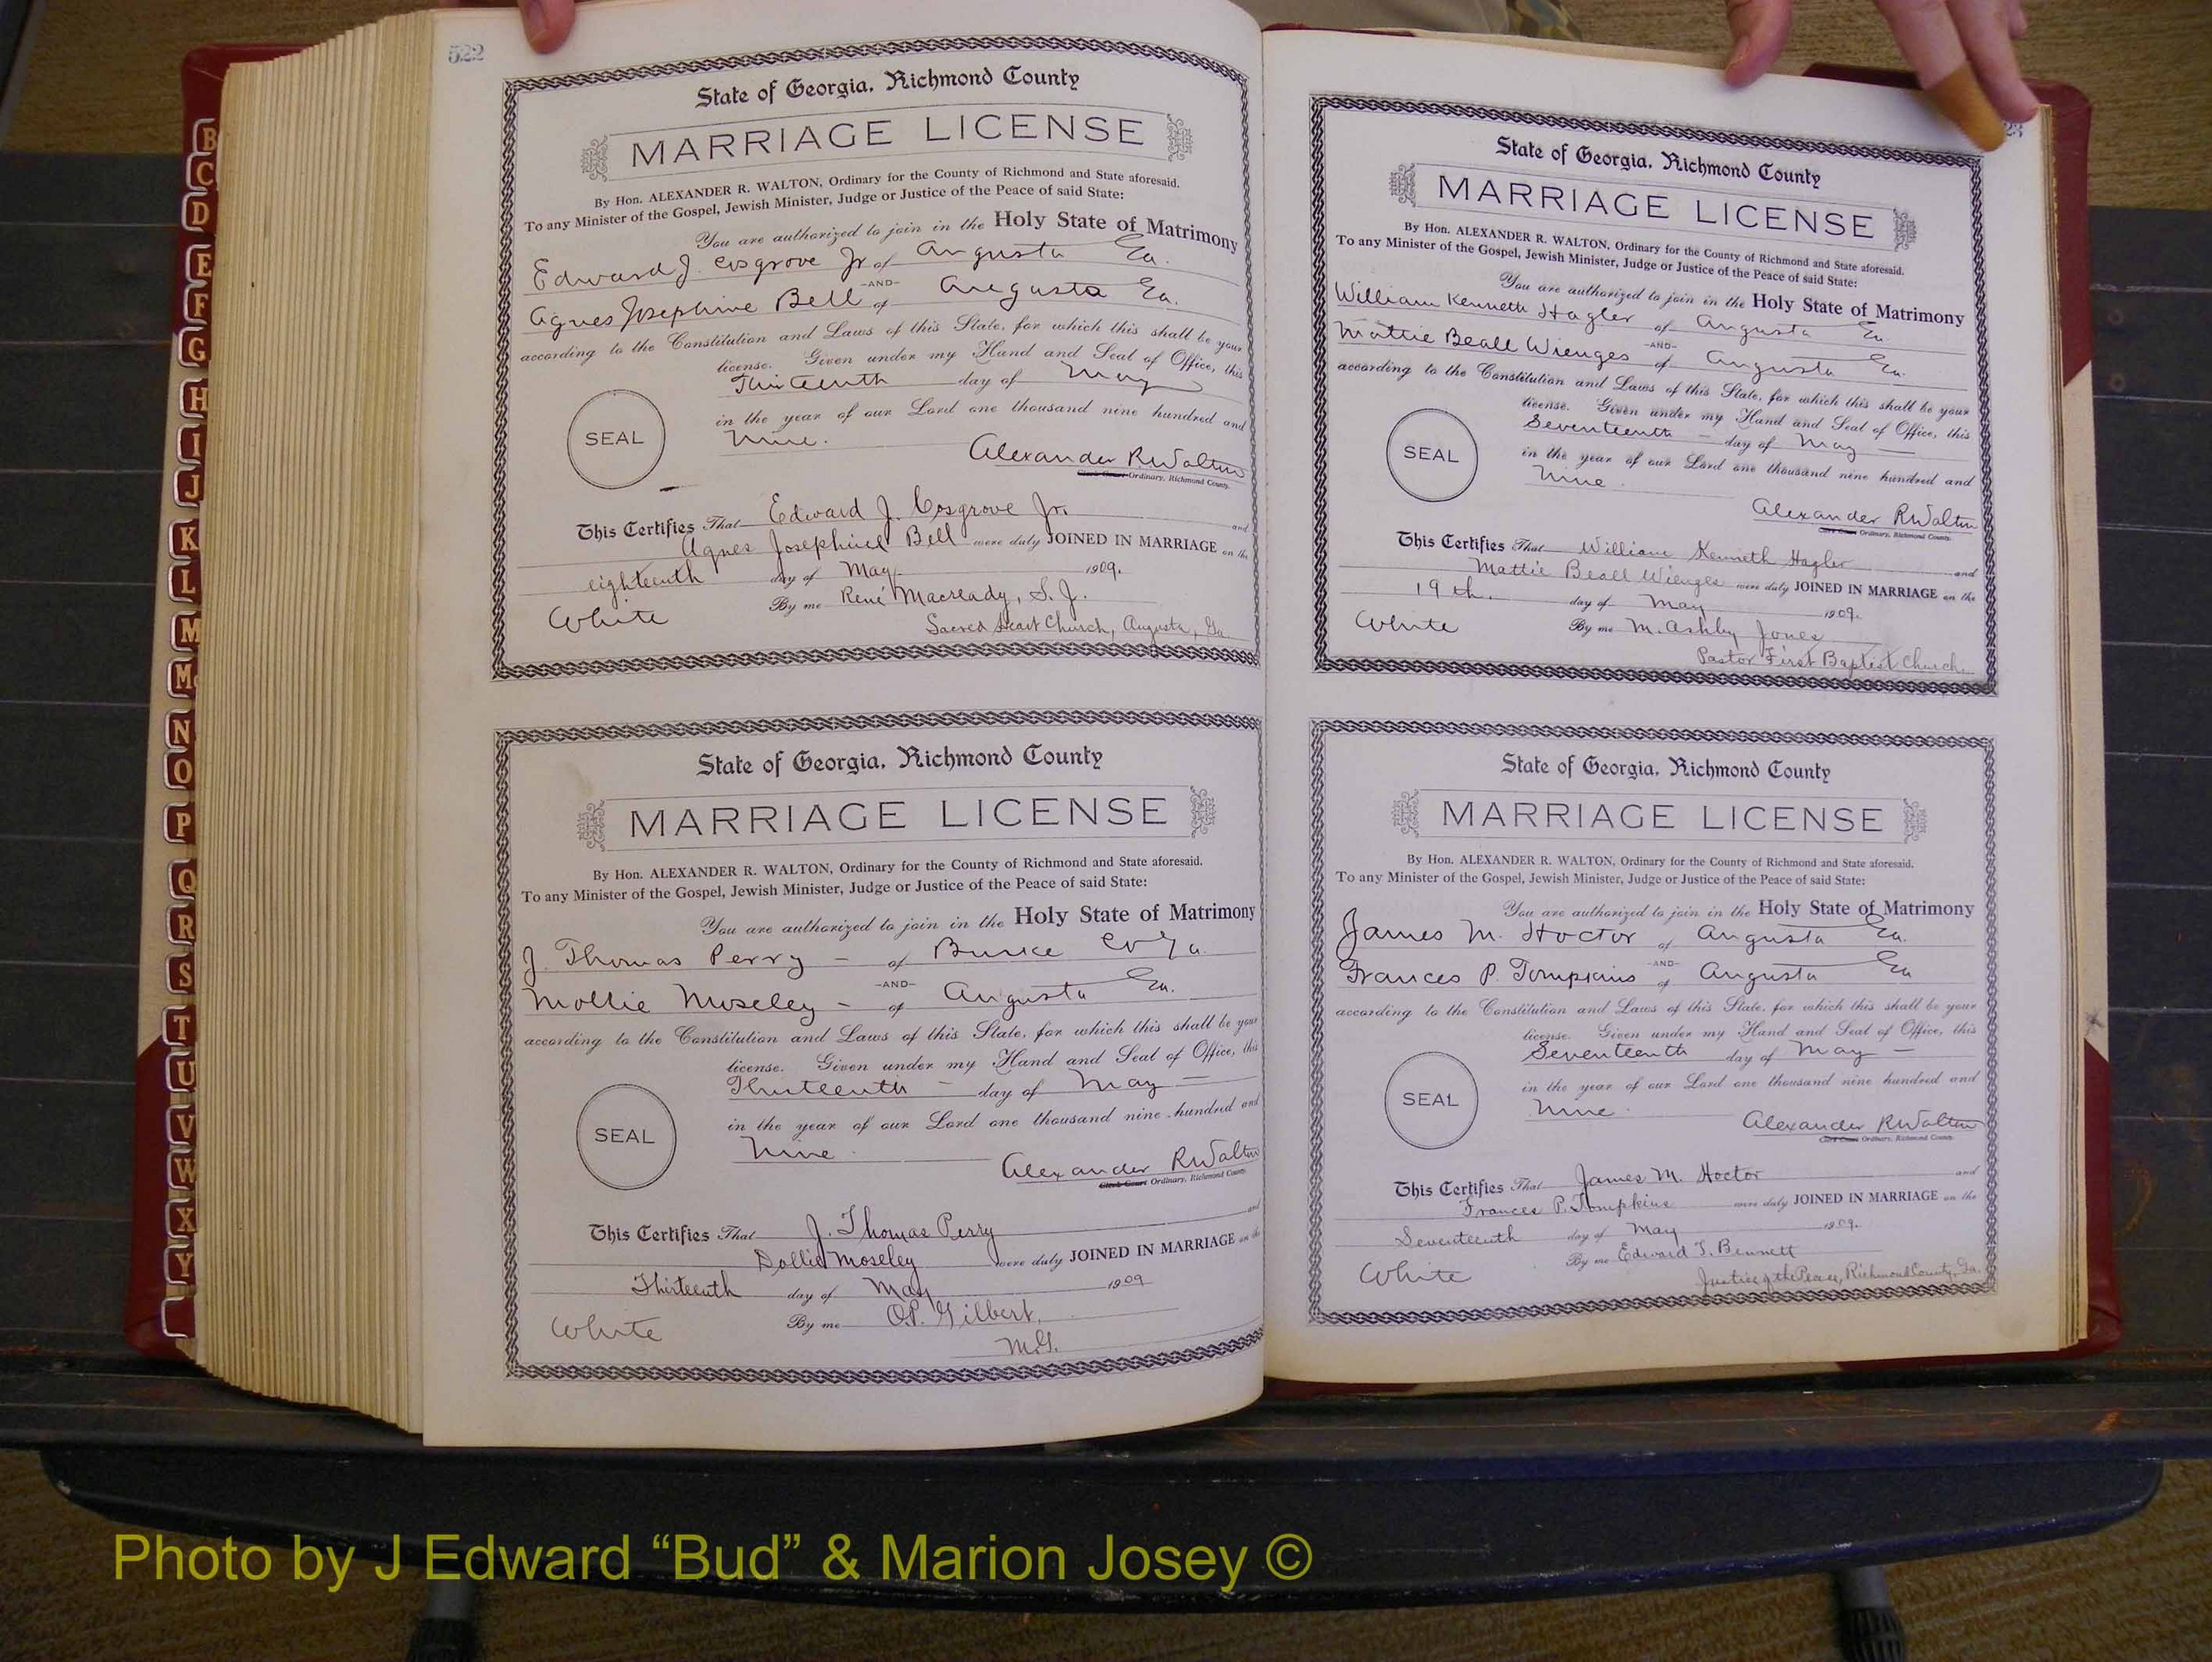 522
State of Georgia, Richmond County
MARRIAGE LICENSE
By Hon. ALEXANDER R. WALTON, Ordinary for the County of Richmond and State aforesaid.
To any Minister of the Gospel, Jewish Minister, Judge or Justice of the Peace of said State:
You are authorized to join in the Holy State of Matrimony
Edward J. Cosgrove Jr of Augusta Ga.
-AND-
Agnes Josephine Bell of Augusta Ga.
according to the Constitution and Laws of this State, for which this shall be your
license. Given under my Hand and Seal of Office, this
Thirteenth day of May
in the year of our Lord one thousand nine hundred and
Nine.
SEAL
Alexander R Walton
Clerk Court Ordinary, Richmond County.
This Certifies That Edward J. Cosgrove Jr. and
Agnes Josephine Bell were duly JOINED IN MARRIAGE on the
eighteenth day of May 1909.
White By me René Macready, S. J.
Sacred Heart Church, Augusta, Ga
State of Georgia, Richmond County
MARRIAGE LICENSE
By Hon. ALEXANDER R. WALTON, Ordinary for the County of Richmond and State aforesaid.
To any Minister of the Gospel, Jewish Minister, Judge or Justice of the Peace of said State:
You are authorized to join in the Holy State of Matrimony
J. Thomas Perry - of Burke Co Ga.
-AND-
Mollie Moseley - of Augusta Ga.
according to the Constitution and Laws of this State, for which this shall be your
license. Given under my Hand and Seal of Office, this
Thirteenth - day of May -
in the year of our Lord one thousand nine hundred and
Nine.
SEAL
Alexander R Walton
Clerk Court Ordinary, Richmond County
This Certifies That J. Thomas Perry and
Dollie Moseley were duly JOINED IN MARRIAGE on the
Thirteenth day of May 1909
White By me O.P. Gilbert.
M.G.
23
State of Georgia, Richmond County
MARRIAGE LICENSE
By Hon. ALEXANDER R. WALTON, Ordinary for the County of Richmond and State aforesaid.
To any Minister of the Gospel, Jewish Minister, Judge or Justice of the Peace of said State:
You are authorized to join in the Holy State of Matrimony
William Kenneth Hagler of Augusta Ga.
-AND-
Mattie Beall Wienges of Augusta Ga.
according to the Constitution and Laws of this State, for which this shall be your
license. Given under my Hand and Seal of Office, this
Seventeenth - day of May -
in the year of our Lord one thousand nine hundred and
Nine
SEAL
Alexander R Walton
Clerk Court Ordinary, Richmond County.
This Certifies That William Kenneth Hagler and
Mattie Beall Wienges were duly JOINED IN MARRIAGE on the
19th. day of May 1909.
White By me M. Ashby Jones
Pastor First Baptist Church.
State of Georgia, Richmond County
MARRIAGE LICENSE
By Hon. ALEXANDER R. WALTON, Ordinary for the County of Richmond and State aforesaid.
To any Minister of the Gospel, Jewish Minister, Judge or Justice of the Peace of said State:
You are authorized to join in the Holy State of Matrimony
James M. Hoctor of Augusta Ga.
-AND-
Frances P. Tompkins of Augusta Ga
according to the Constitution and Laws of this State, for which this shall be your
license. Given under my Hand and Seal of Office, this
Seventeenth day of May -
in the year of our Lord one thousand nine hundred and
Nine.
SEAL
Alexander R Walton
Clerk Court Ordinary, Richmond County.
This Certifies That James M. Hoctor and
Frances P. Tompkins were duly JOINED IN MARRIAGE on the
Seventeenth day of May 1909.
White By me Edward T. Bennett
Justice of the Peace, Richmond County, Ga.
B
C
D
E
F
G
H
I
J
K
L
M
Mc
N
O
P
Q
R
S
T
U
V
W
X
Y
Photo by J Edward “Bud” & Marion Josey ©